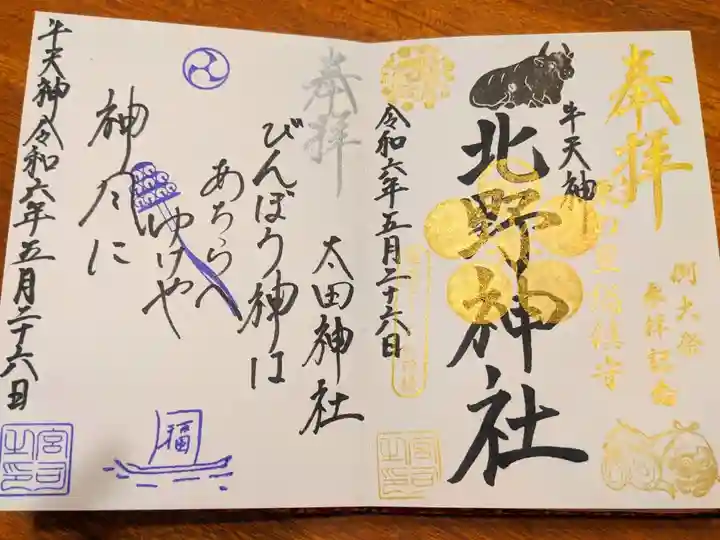 奉拝
例大祭
奉拝記念
牛天神
北野神社
令和六年五月二十六日
奉拝
太田神社
びんぼう神は
あちらへ
ゆけや
神々に
牛天神 令和六年五月二十六日
福
宮司之印
宮司之印